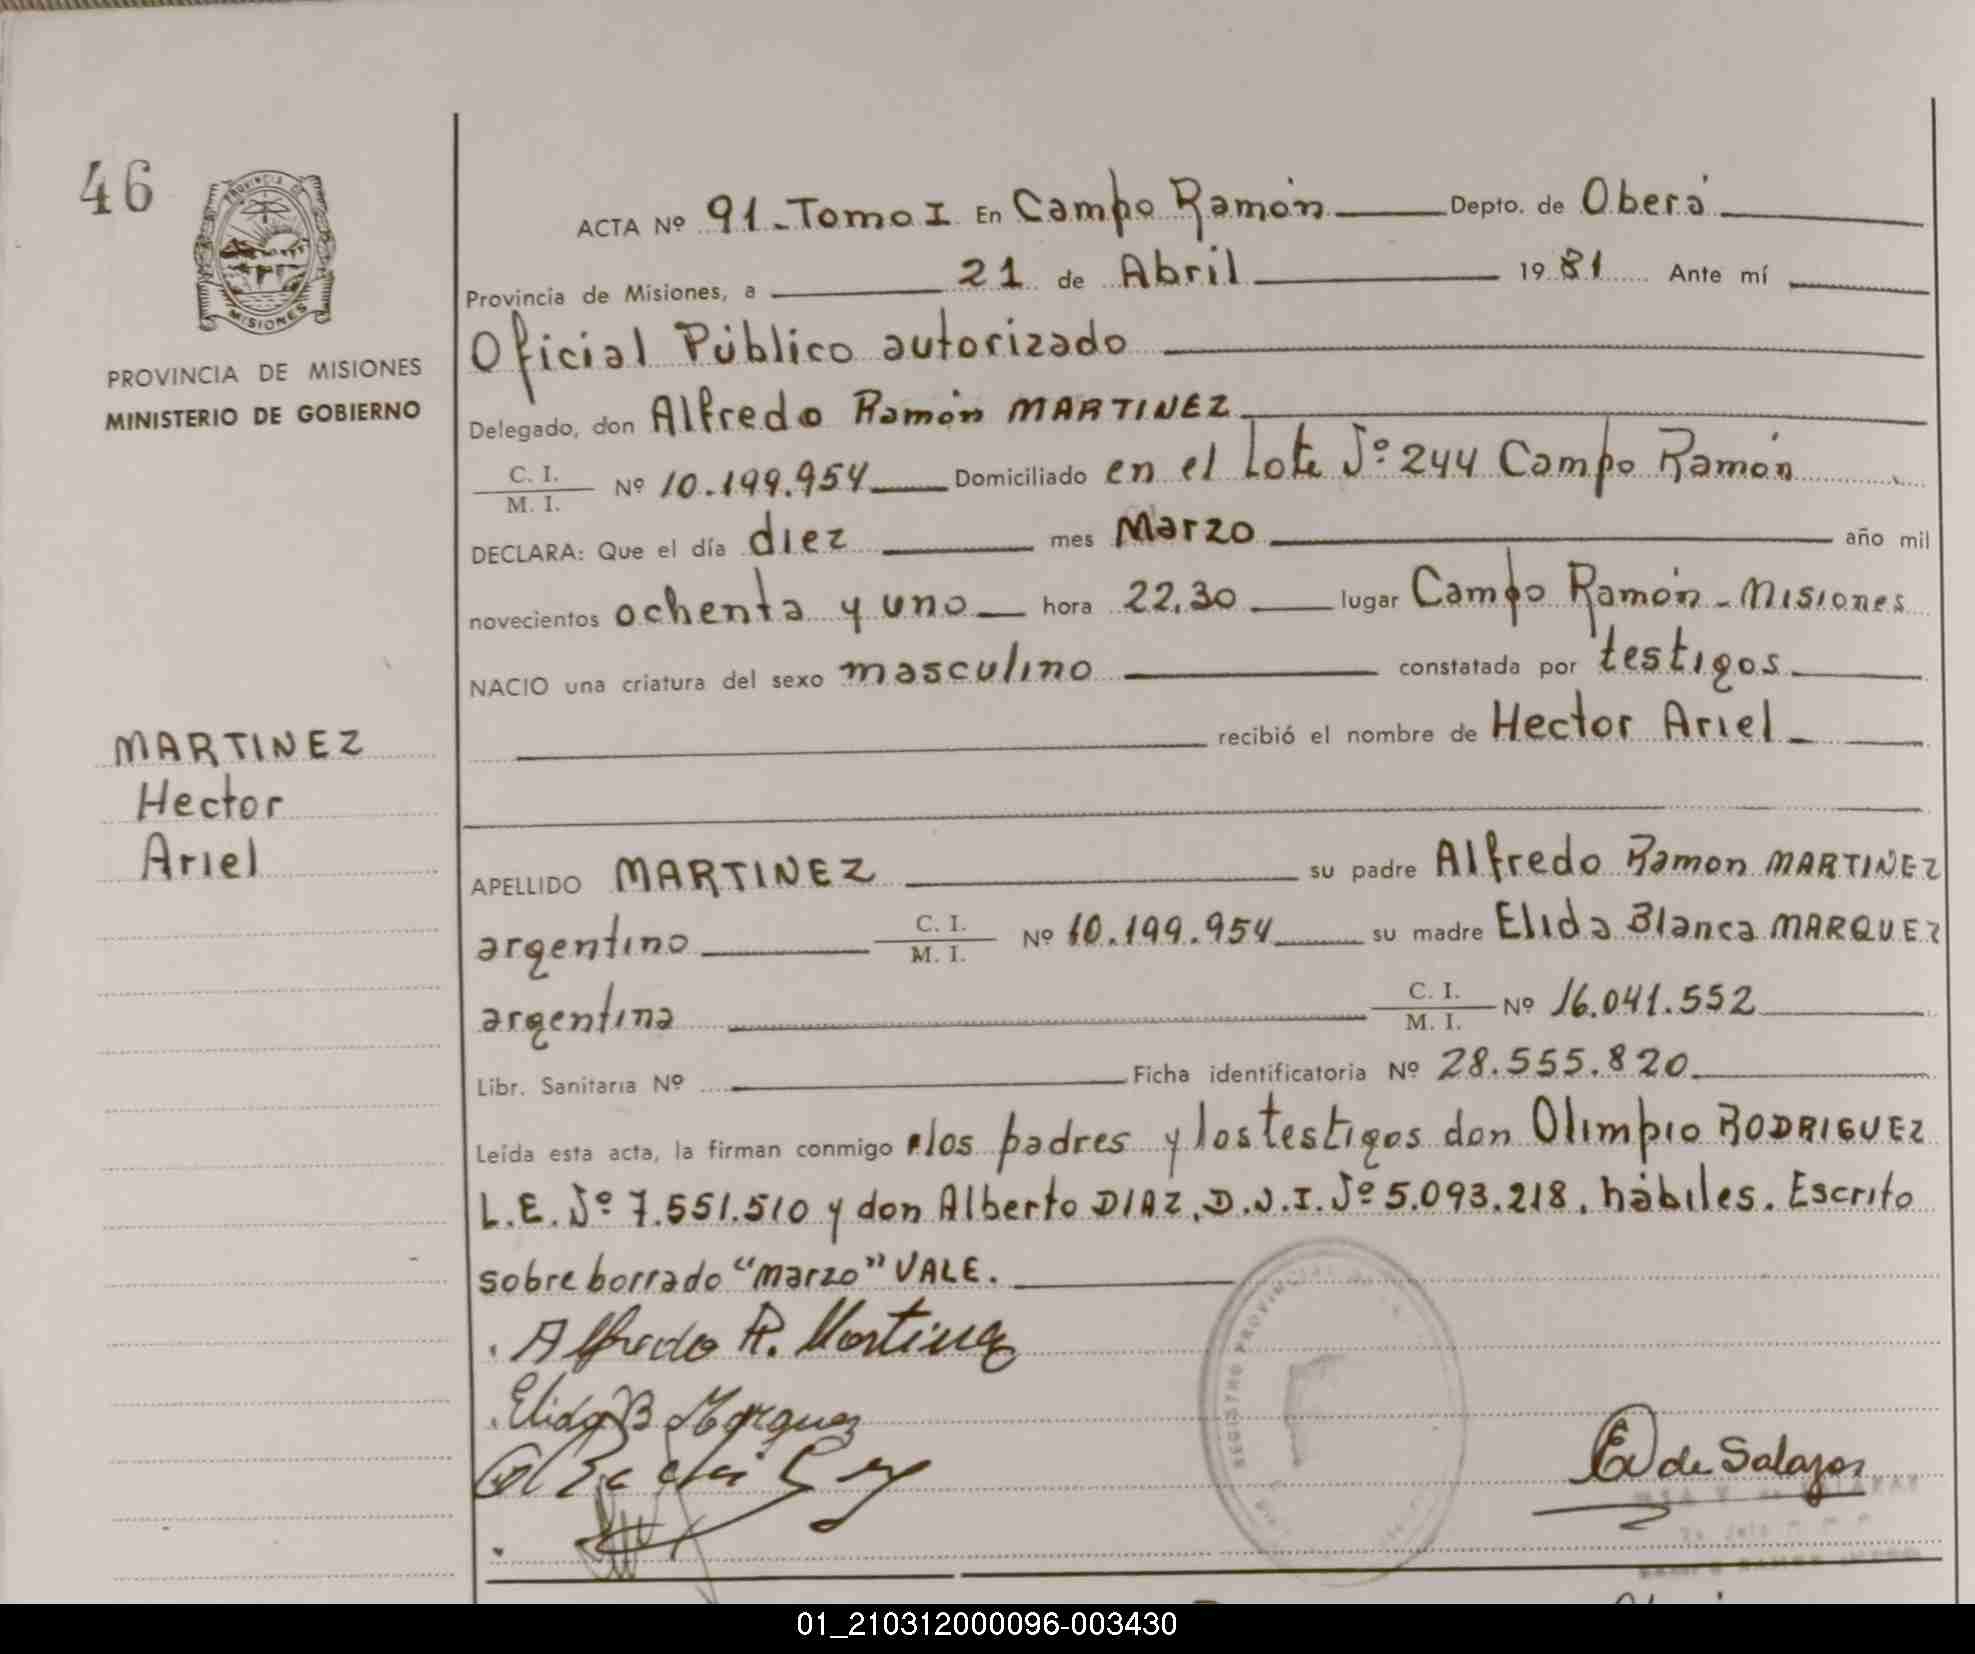 46
PROVINCIA DE MISIONES
PROVINCIA DE MISIONES
MINISTERIO DE GOBIERNO
MARTINEZ
Hector
Ariel
ACTA Nº 91 - Tomo I En Campo Ramón Depto. de Oberá
Provincia de Misiones, a 21 de Abril 1981 Ante mí
Oficial Público autorizado
Delegado, don Alfredo Ramón MARTINEZ
C. I. / M. I. Nº 10.199.954 Domiciliado en el Lote Nº 244 Campo Ramón
DECLARA: Que el día diez mes Marzo año mil
novecientos ochenta y uno hora 22,30 lugar Campo Ramón - Misiones
NACIO una criatura del sexo masculino constatada por testigos
recibió el nombre de Hector Ariel
APELLIDO MARTINEZ su padre Alfredo Ramon MARTINEZ
argentino C. I. / M. I. Nº 10.199.954 su madre Elida Blanca MARQUEZ
argentina C. I. / M. I. Nº 16.041.552
Libr. Sanitaria Nº Ficha identificatoria Nº 28.555.820
Leída esta acta, la firman conmigo los padres y los testigos don Olimpio RODRIGUEZ
L.E. Nº 7.551.510 y don Alberto DIAZ, D.N.I. Nº 5.093.218, hábiles. Escrito
sobre borrado "marzo" VALE.
Alfredo R. Martinez
Elida B Marquez
REGISTRO PROVINCIAL
de Salazar
01_210312000096-003430